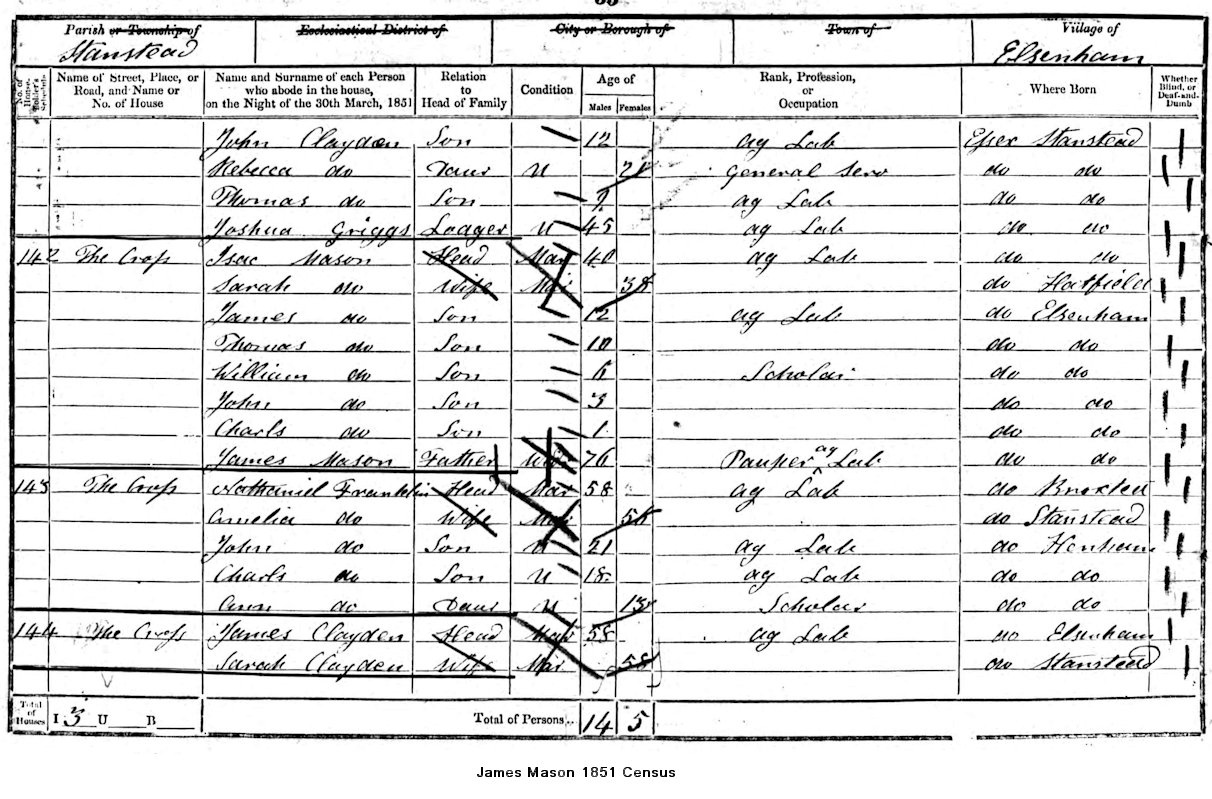 Parish or Township of Ecclesiastical District of City or Borough of Town of Village of
Stanstead Elsenham
No. of House-holder's Schedule Name of Street, Place, or Road, and Name or No. of House Name and Surname of each Person who abode in the house, on the Night of the 30th March, 1851 Relation to Head of Family Condition Age of Males Females Rank, Profession, or Occupation Where Born Whether Blind, or Deaf-and-Dumb
John Clayden Son 12 ag Lab Essex Stanstead
Rebecca do Daur U General Serv do do
Thomas do Son 9 ag Lab do do
Joshua Griggs Lodger U 45 ag Lab do do
142 The Cross Isac Mason Head Mar 40 ag Lab do do
Sarah do Wife Mar 38 do Hatfield
James do Son 12 ag Lab do Elsenham
Thomas do Son 10 do do
William do Son 6 Scholar do do
John do Son 3 do do
Charls do Son 1 do do
James Mason Father 76 Pauper ag Lab do do
143 The Cross Nathaniel Franklin Head Mar 58 ag Lab do
Amelia do Wife Mar 56 do Stanstead
John do Son U 21 ag Lab do Henham
Charls do Son U 18 ag Lab do do
Ann do Daur U 13 Scholar do do
144 The Cross James Clayden Head Mar 58 ag Lab do Elsenham
Sarah Clayden Wife Mar 58 do Stanstead
Total of Houses I 3 U B Total of Persons.. 14 5
James Mason 1851 Census